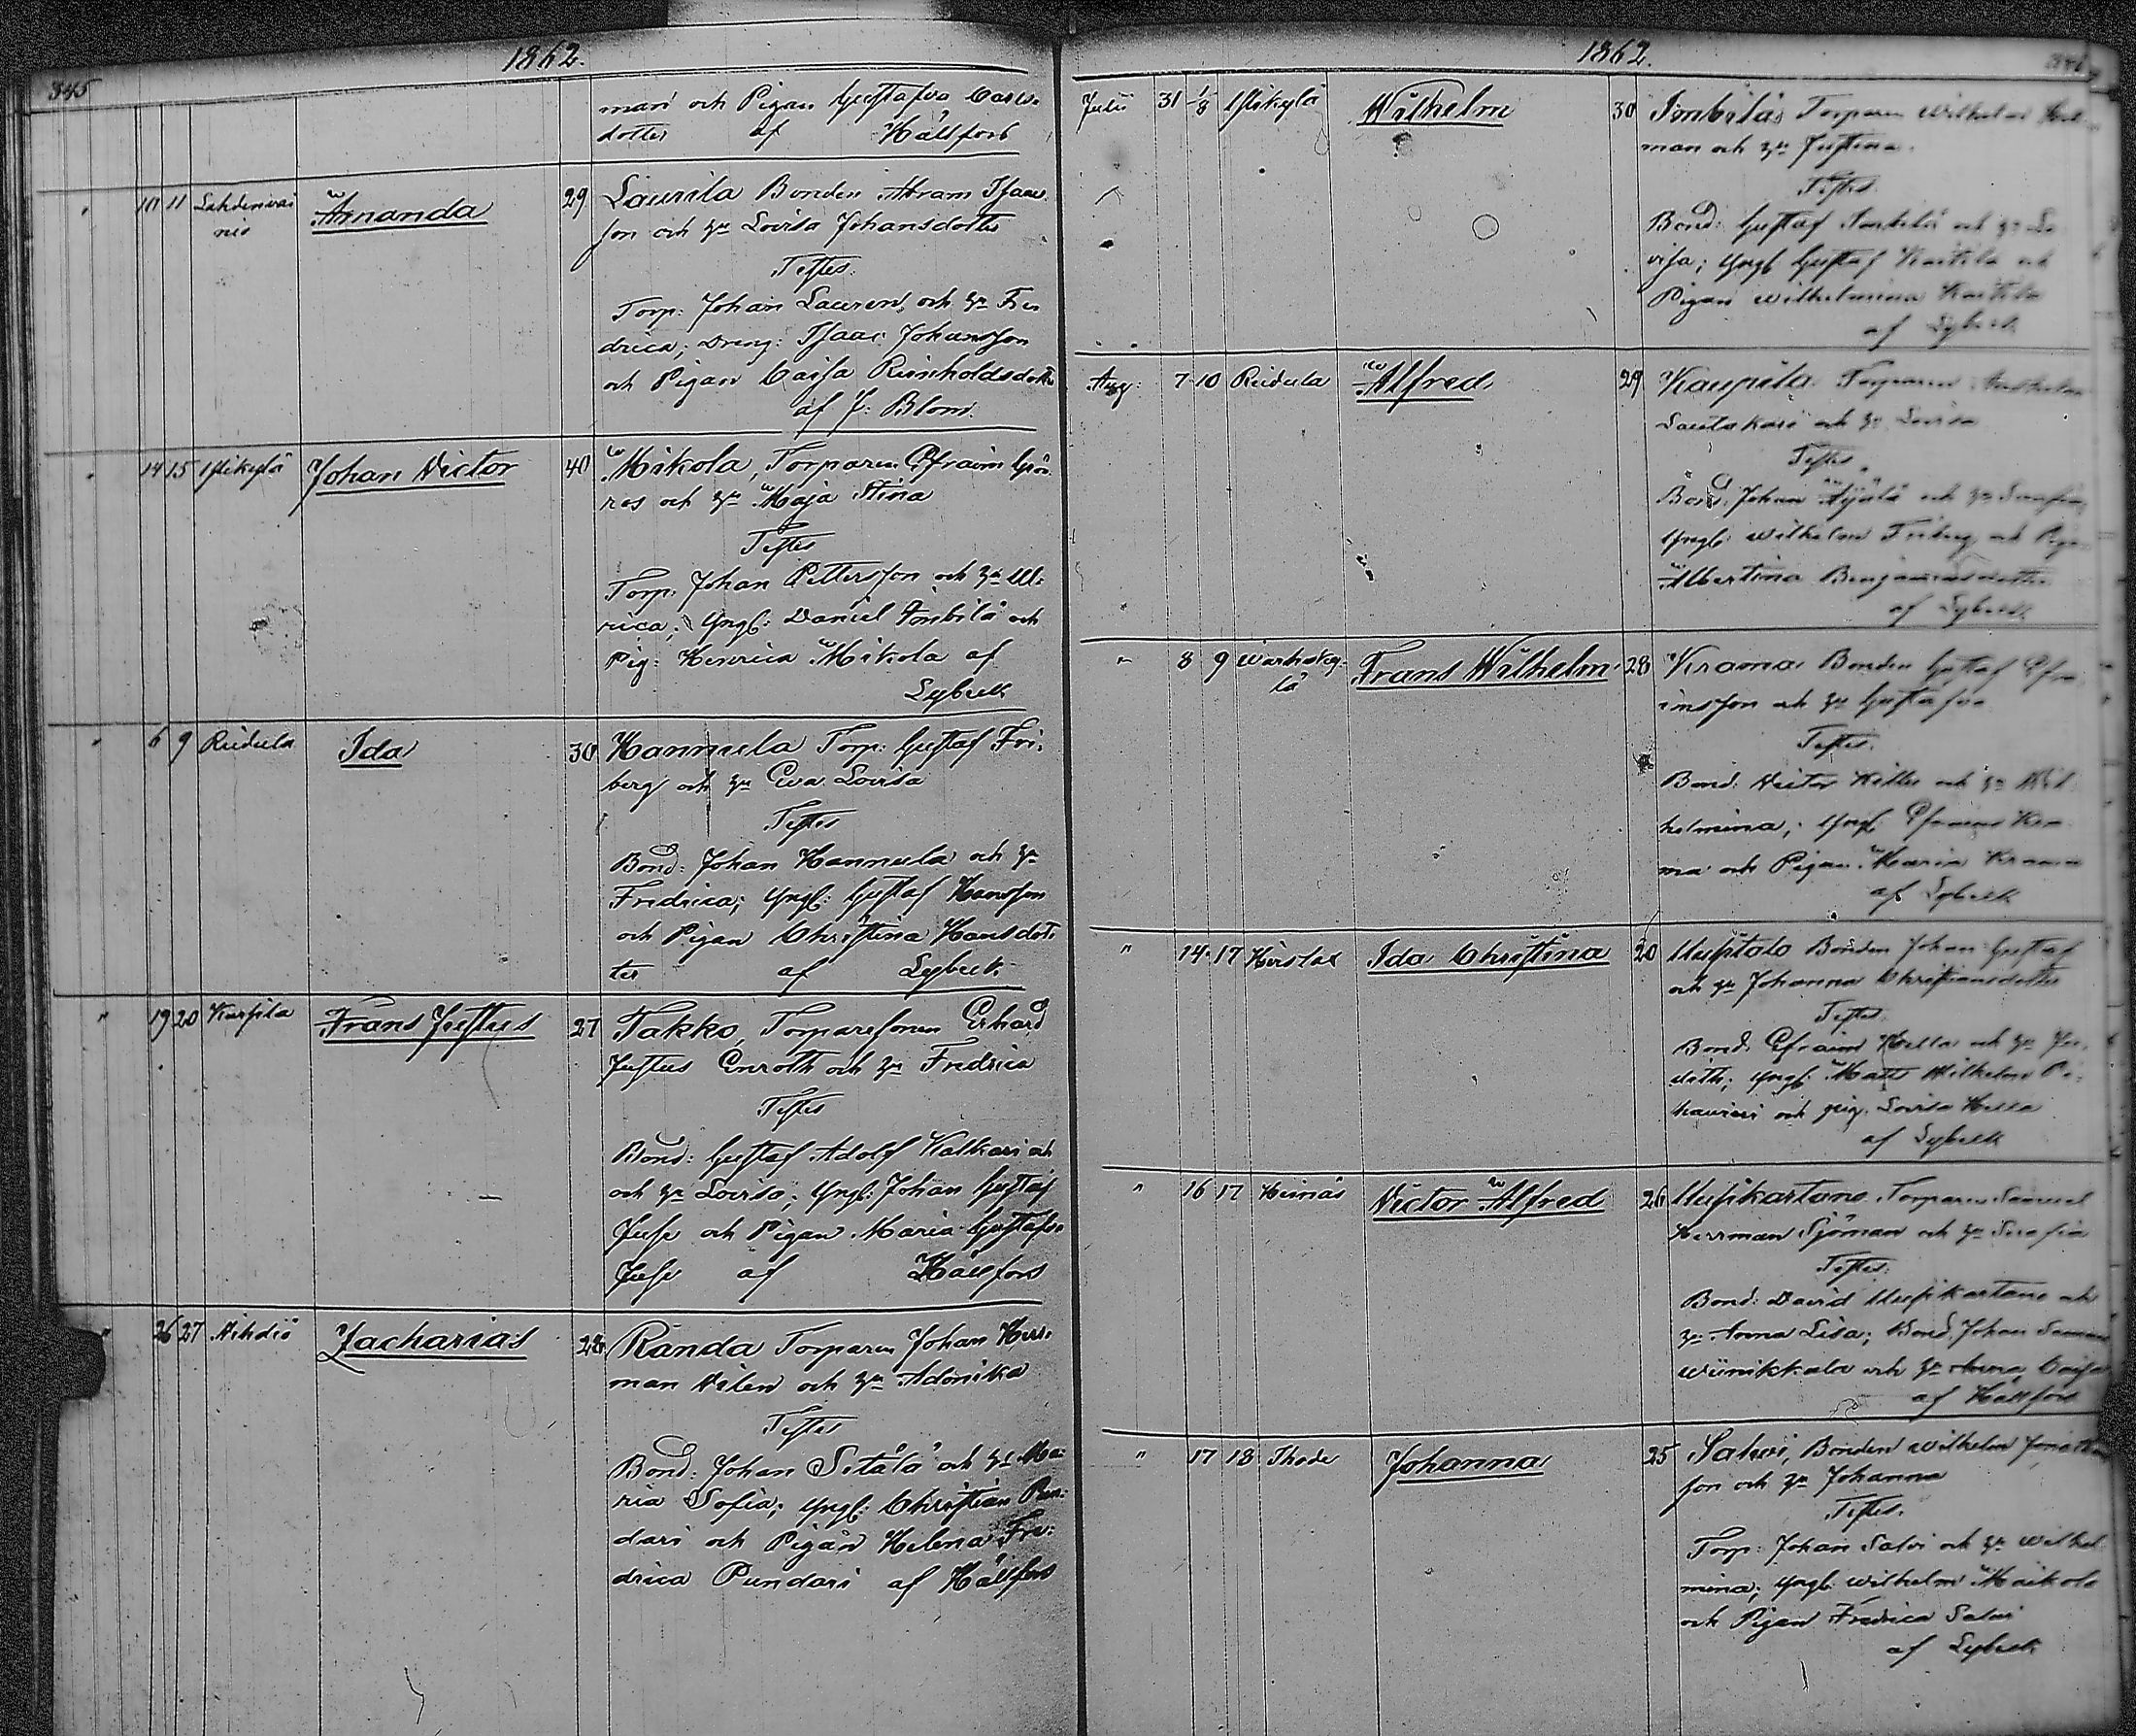 1862.
345
man och Pigan Gustafva Carls-
dotter af Hällfors
" 10 11 Lahdenvai Amanda 29 Laurila Bonden Abram Isaac
nio son och hu Lovisa Johansdotter
Testes.
Torp: Johan Lauren, och hu Fre
drica; Dreng: Isaac Johansson
och Pigan Caisa Reinholdsdotter
af J: Blom.
" 14 15 Ylikylä Johan Victor 40 Mikola, Torparen Efraim Grön
ros och hu Maja Stina
Testes
Torp. Johan Pettersson och hu Ul:
rica; Yngl: Daniel Imbilä och
Pig: Henrica Mikola af
Lybeck
" 6 9 Reidula Ida 30 Hannula Torp: Gustaf Fri:
berg och hu Eva Lovisa
Testes
Bond: Johan Hannula och hu
Fredrica; Yngl: Gustaf Hansson
och Pigan Christina Hansdot:
ter af Lybeck
" 19 20 Karsila Frans Justus 27 Takko, Torparesonen Erhard
Justus Enroth och hu Fredrica
Testes
Bond: Gustaf Adolf Kalkari och
och hu Lovisa; Yngl: Johan Gustaf
Juse och Pigan Maria Gustafva
Juse af Hällfors
" 26 27 Aihdiö Zacharias 28 Randa Torparen Johan Her:
man Helen och hu Adonika
Testes
Bond: Johan Sitälä och hu Ma:
ria Sofia; Yngl: Christian Pun:
dari och Pigan Helena Fre:
drica Pundari af Hällfors
1862.
346
Julii 31 1/8 Ylikylä Wilhelm 30 Imbilä, Torparen Wilhelm
man och hu Justina.
Testes.
Bond: Gustaf Imbilä och hu Lo
visa; Yngl: Gustaf Kaitila och
Pigan Wilhelmina Kaitila
af Lybeck
Aug: 7 10 Reidula Alfred 29 Kaupila Torparen
Lautakari och hu Lovisa
Testes
Bond. Johan Äijälä och hu Serafia,
Yngl: Wilhelm Friberg och Pigan
Albertina Benjaminsdotter
af Lybeck
" 8 9 Wärhäky- Frans Wilhelm 28 Krama Bonden Gustaf Efra
lä imsson och hu Gustafva
Testes.
Bond: Victor Hella och hu Wil
helmina; Yngl: Efraim Kra
ma och Pigan Maria Krama
af Lybeck
" 14 17 Heislax Ida Christina 20 Uusitalo Bonden Johan Gustaf
och hu Johanna Christiansdotter
Testes.
Bond: Efraim Hella och hu Ju:
dith; Yngl: Matts Wilhelm Pi:
hauisi och pig. Lovisa Hella
af Lybeck
" 16 17 Heinäs Victor Alfred 26 Uusikartano Torparen Samuel
Herrman Sjöman och hu Serafia
Testes:
Bond: David Uusikartano och
hu Anna Lisa; Bond. Johan Samuel
Wiinikkala och hu Anna Caisa
af Hällfors
" 17 18 Thode Johanna 25 Salvi, Bonden Wilhelm Jonathan
son och hu Johanna
Testes.
Torp: Johan Salvi och hu Wilhel
mina; Yngl: Wilhelm Maikola
och Pigan Fredrica Salvi
af Lybeck